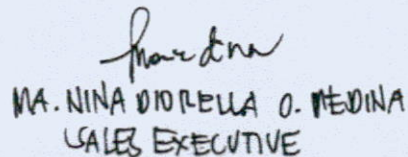 MA. NINA DIORELLA O. MEDINA
SALES EXECUTIVE